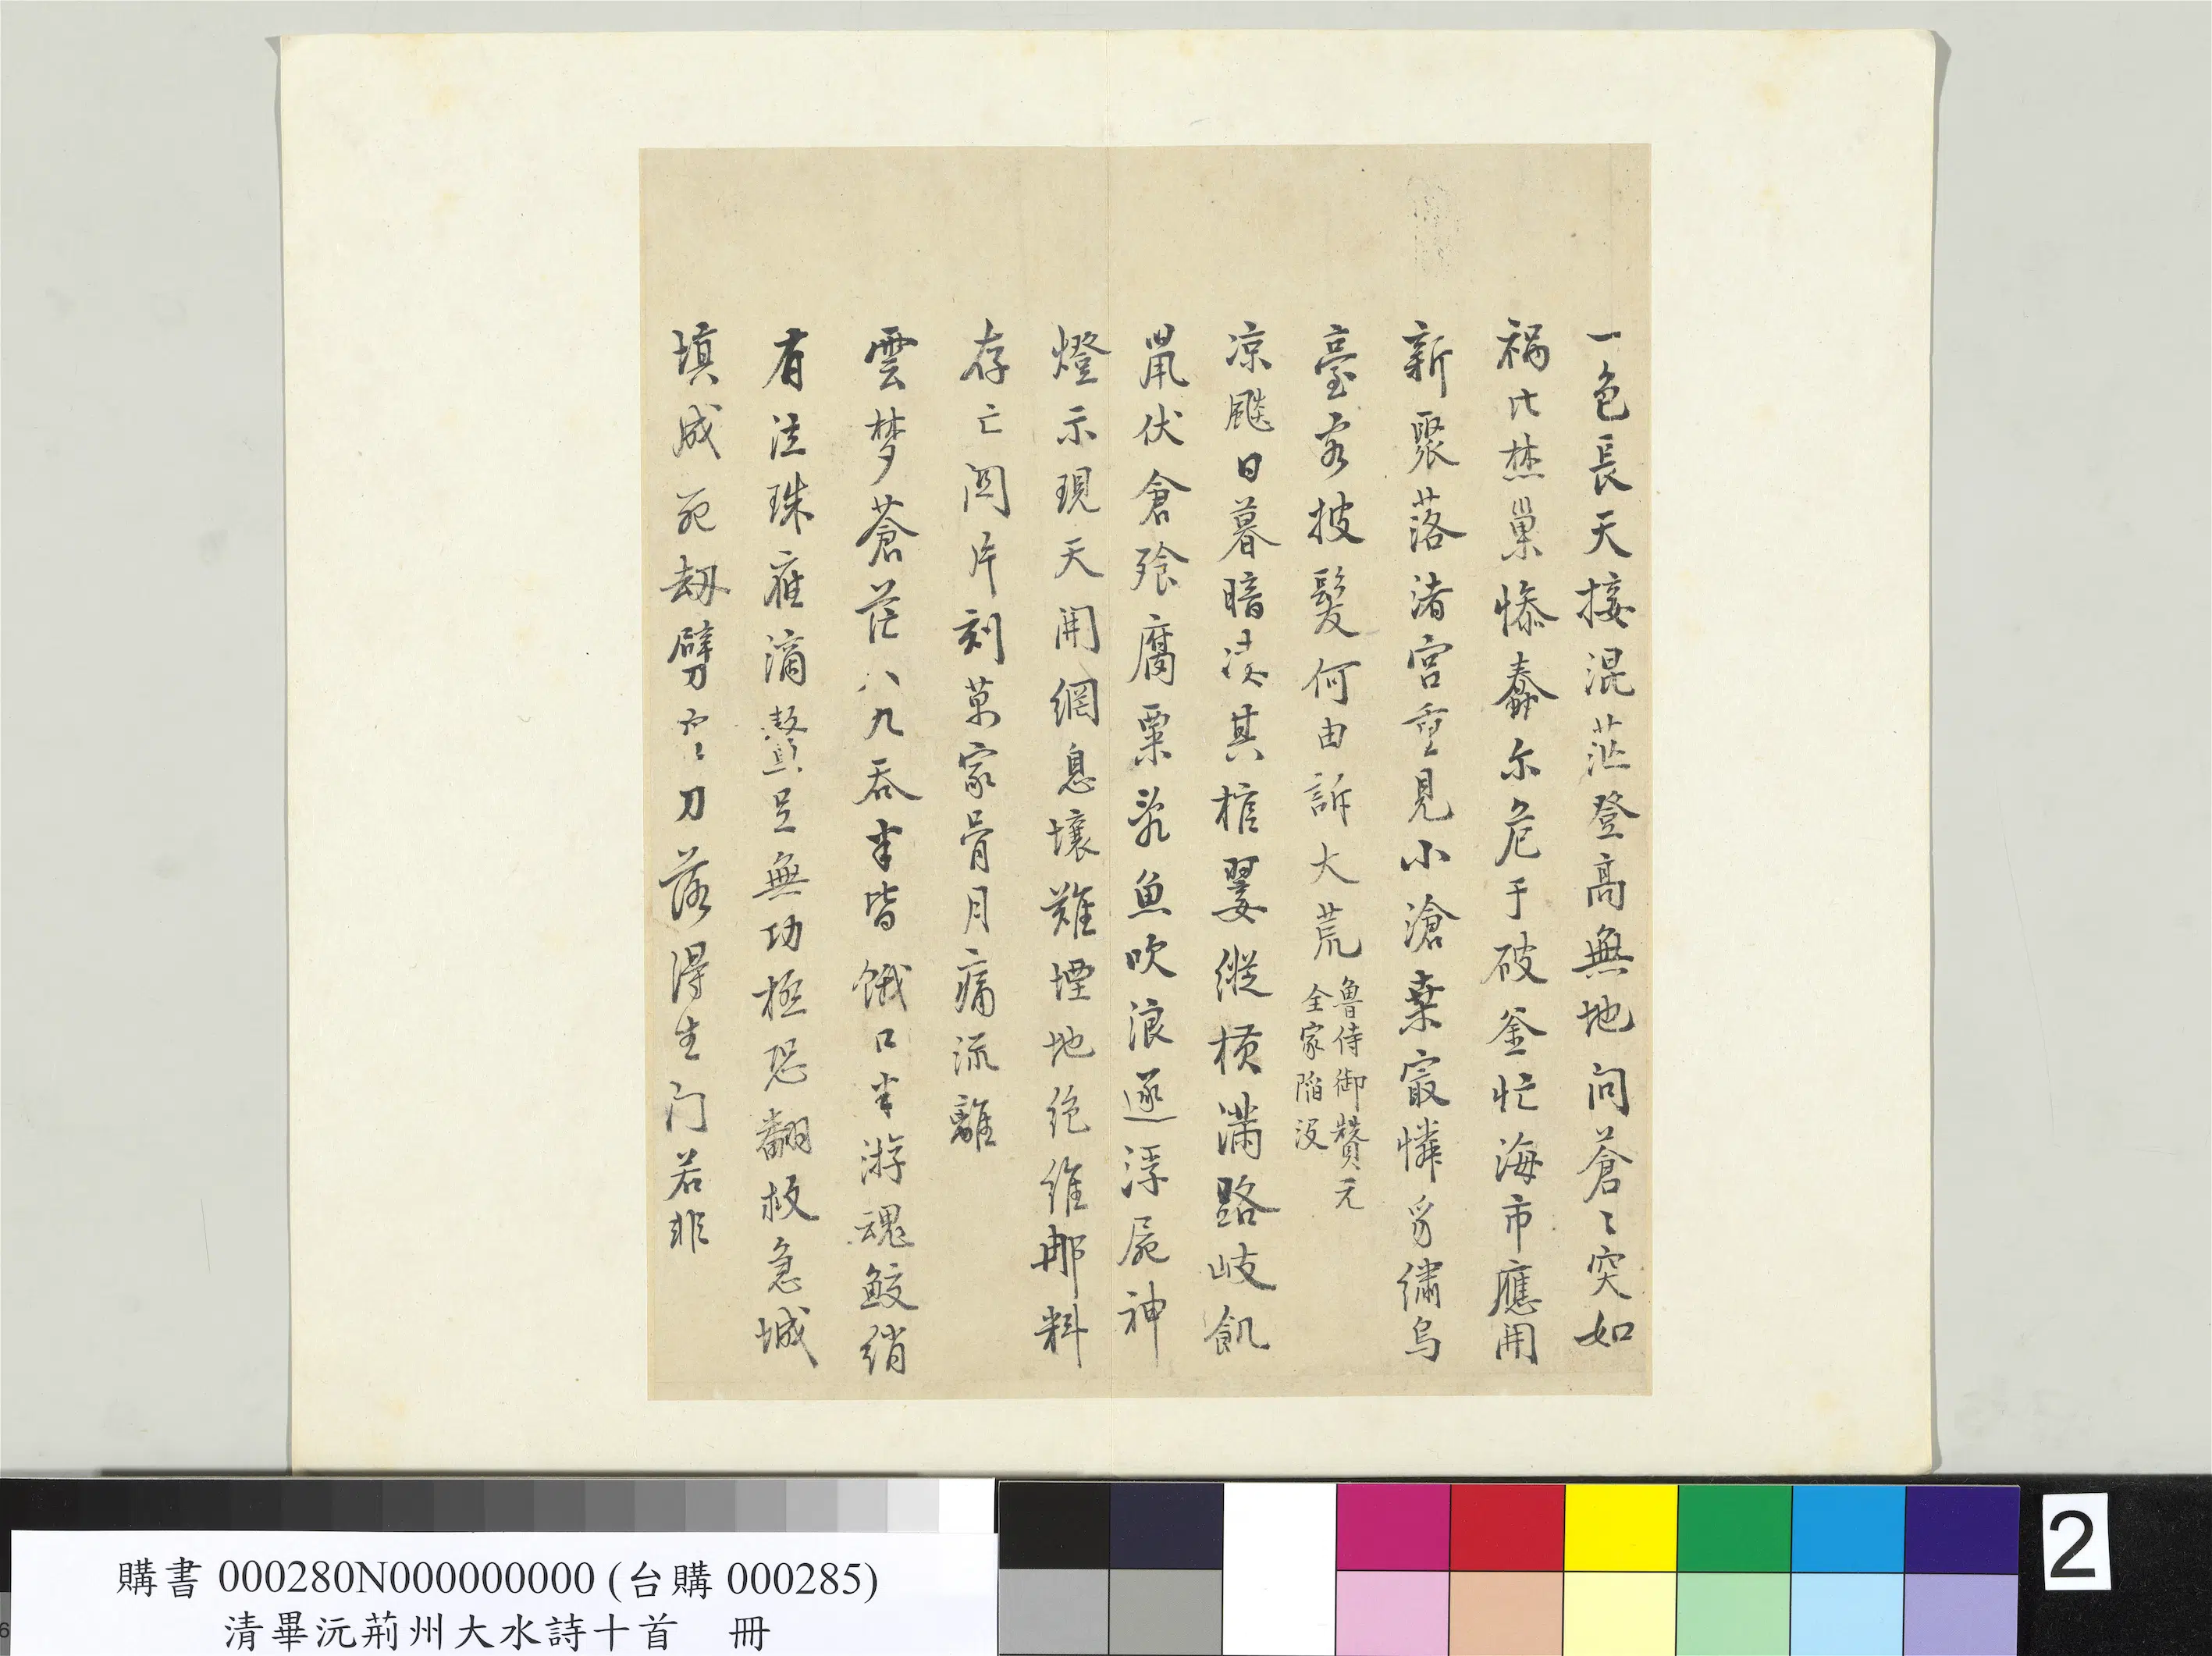 一色長天接混茫登高無地問蒼〻突如
禍比焚巢慘蠢尔危于破釜忙海市應開
新聚落渚宮重見小滄桑最憐身繡烏
臺客披髮何由訴大荒
魯侍御贊元
全家陷没
凉飈日暮暗淒其棺翣縱横滿路岐飢
鼠伏倉飱腐粟亂魚吹浪逐浮屍神
燈示現天開網息壤難堙地絶維那料
存亡關片刻萬家骨月痛流離
雲梦蒼茫八九吞半皆餓口半游魂鮫綃
有泣珠應滴鼇足無功極恐翻救急城
填成死劫劈空刀落得生门若非
購書 000280N000000000 (台購 000285)
清畢沅荊州大水詩十首 冊
2